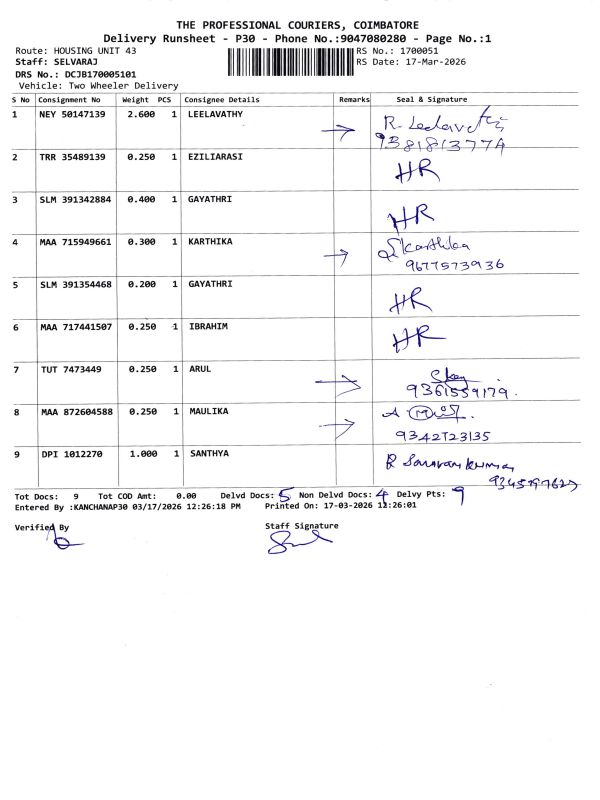 THE PROFESSIONAL COURIERS, COIMBATORE
Delivery Runsheet - P30 - Phone No.:9047080280 - Page No.:1
Route: HOUSING UNIT 43 RS No.: 1700051
Staff: SELVARAJ RS Date: 17-Mar-2026
DRS No.: DCJB170005101
Vehicle: Two Wheeler Delivery
S No Consignment No Weight PCS Consignee Details Remarks Seal & Signature
1 NEY 50147139 2.600 1 LEELAVATHY → R. Leelavathi
9381813774
2 TRR 35489139 0.250 1 EZILIARASI HR
3 SLM 391342884 0.400 1 GAYATHRI HR
4 MAA 715949661 0.300 1 KARTHIKA → Karthika
9677573936
5 SLM 391354468 0.200 1 GAYATHRI HR
6 MAA 717441507 0.250 1 IBRAHIM HR
7 TUT 7473449 0.250 1 ARUL →
9361559179.
8 MAA 872604588 0.250 1 MAULIKA → A
9342723135
9 DPI 1012270 1.000 1 SANTHYA R Saravan kumar
Tot Docs: 9 Tot COD Amt: 0.00 Delvd Docs: 5 Non Delvd Docs: 4 Delvy Pts: 9
Entered By :KANCHANAP30 03/17/2026 12:26:18 PM Printed On: 17-03-2026 12:26:01
Verified By Staff Signature